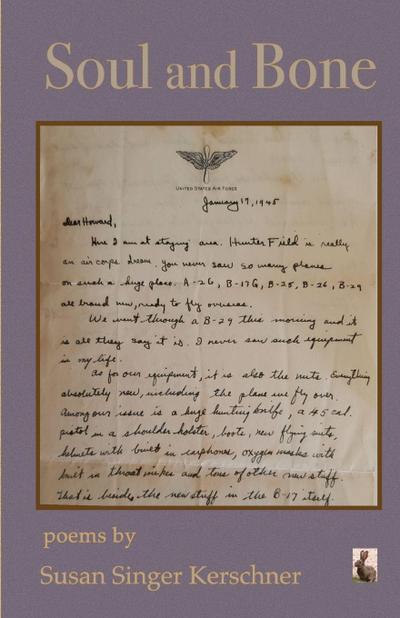 Soul and Bone
UNITED STATES AIR FORCE
January 17, 1945
dear Howard,
Here I am at staging area. Hunter Field is really
an air corps dream. You never saw so many planes
on such a huge place. A-26, B-17G, B-25, B-26, B-29
all brand new, ready to fly overseas.
We went through a B-29 this morning and it
is all they say it is. I never saw such equipment
in my life.
As for our equipment, it is also the nuts. Everything
absolutely new, including the plane we fly over.
Among our issue is a huge hunting knife, a 45 cal.
pistol in a shoulder holster, boots, new flying suits,
helmets with built in earphones, oxygen masks with
built in throat mikes and tons of other new stuff.
That is besides the new stuff in the B-17 itself.
poems by
Susan Singer Kerschner